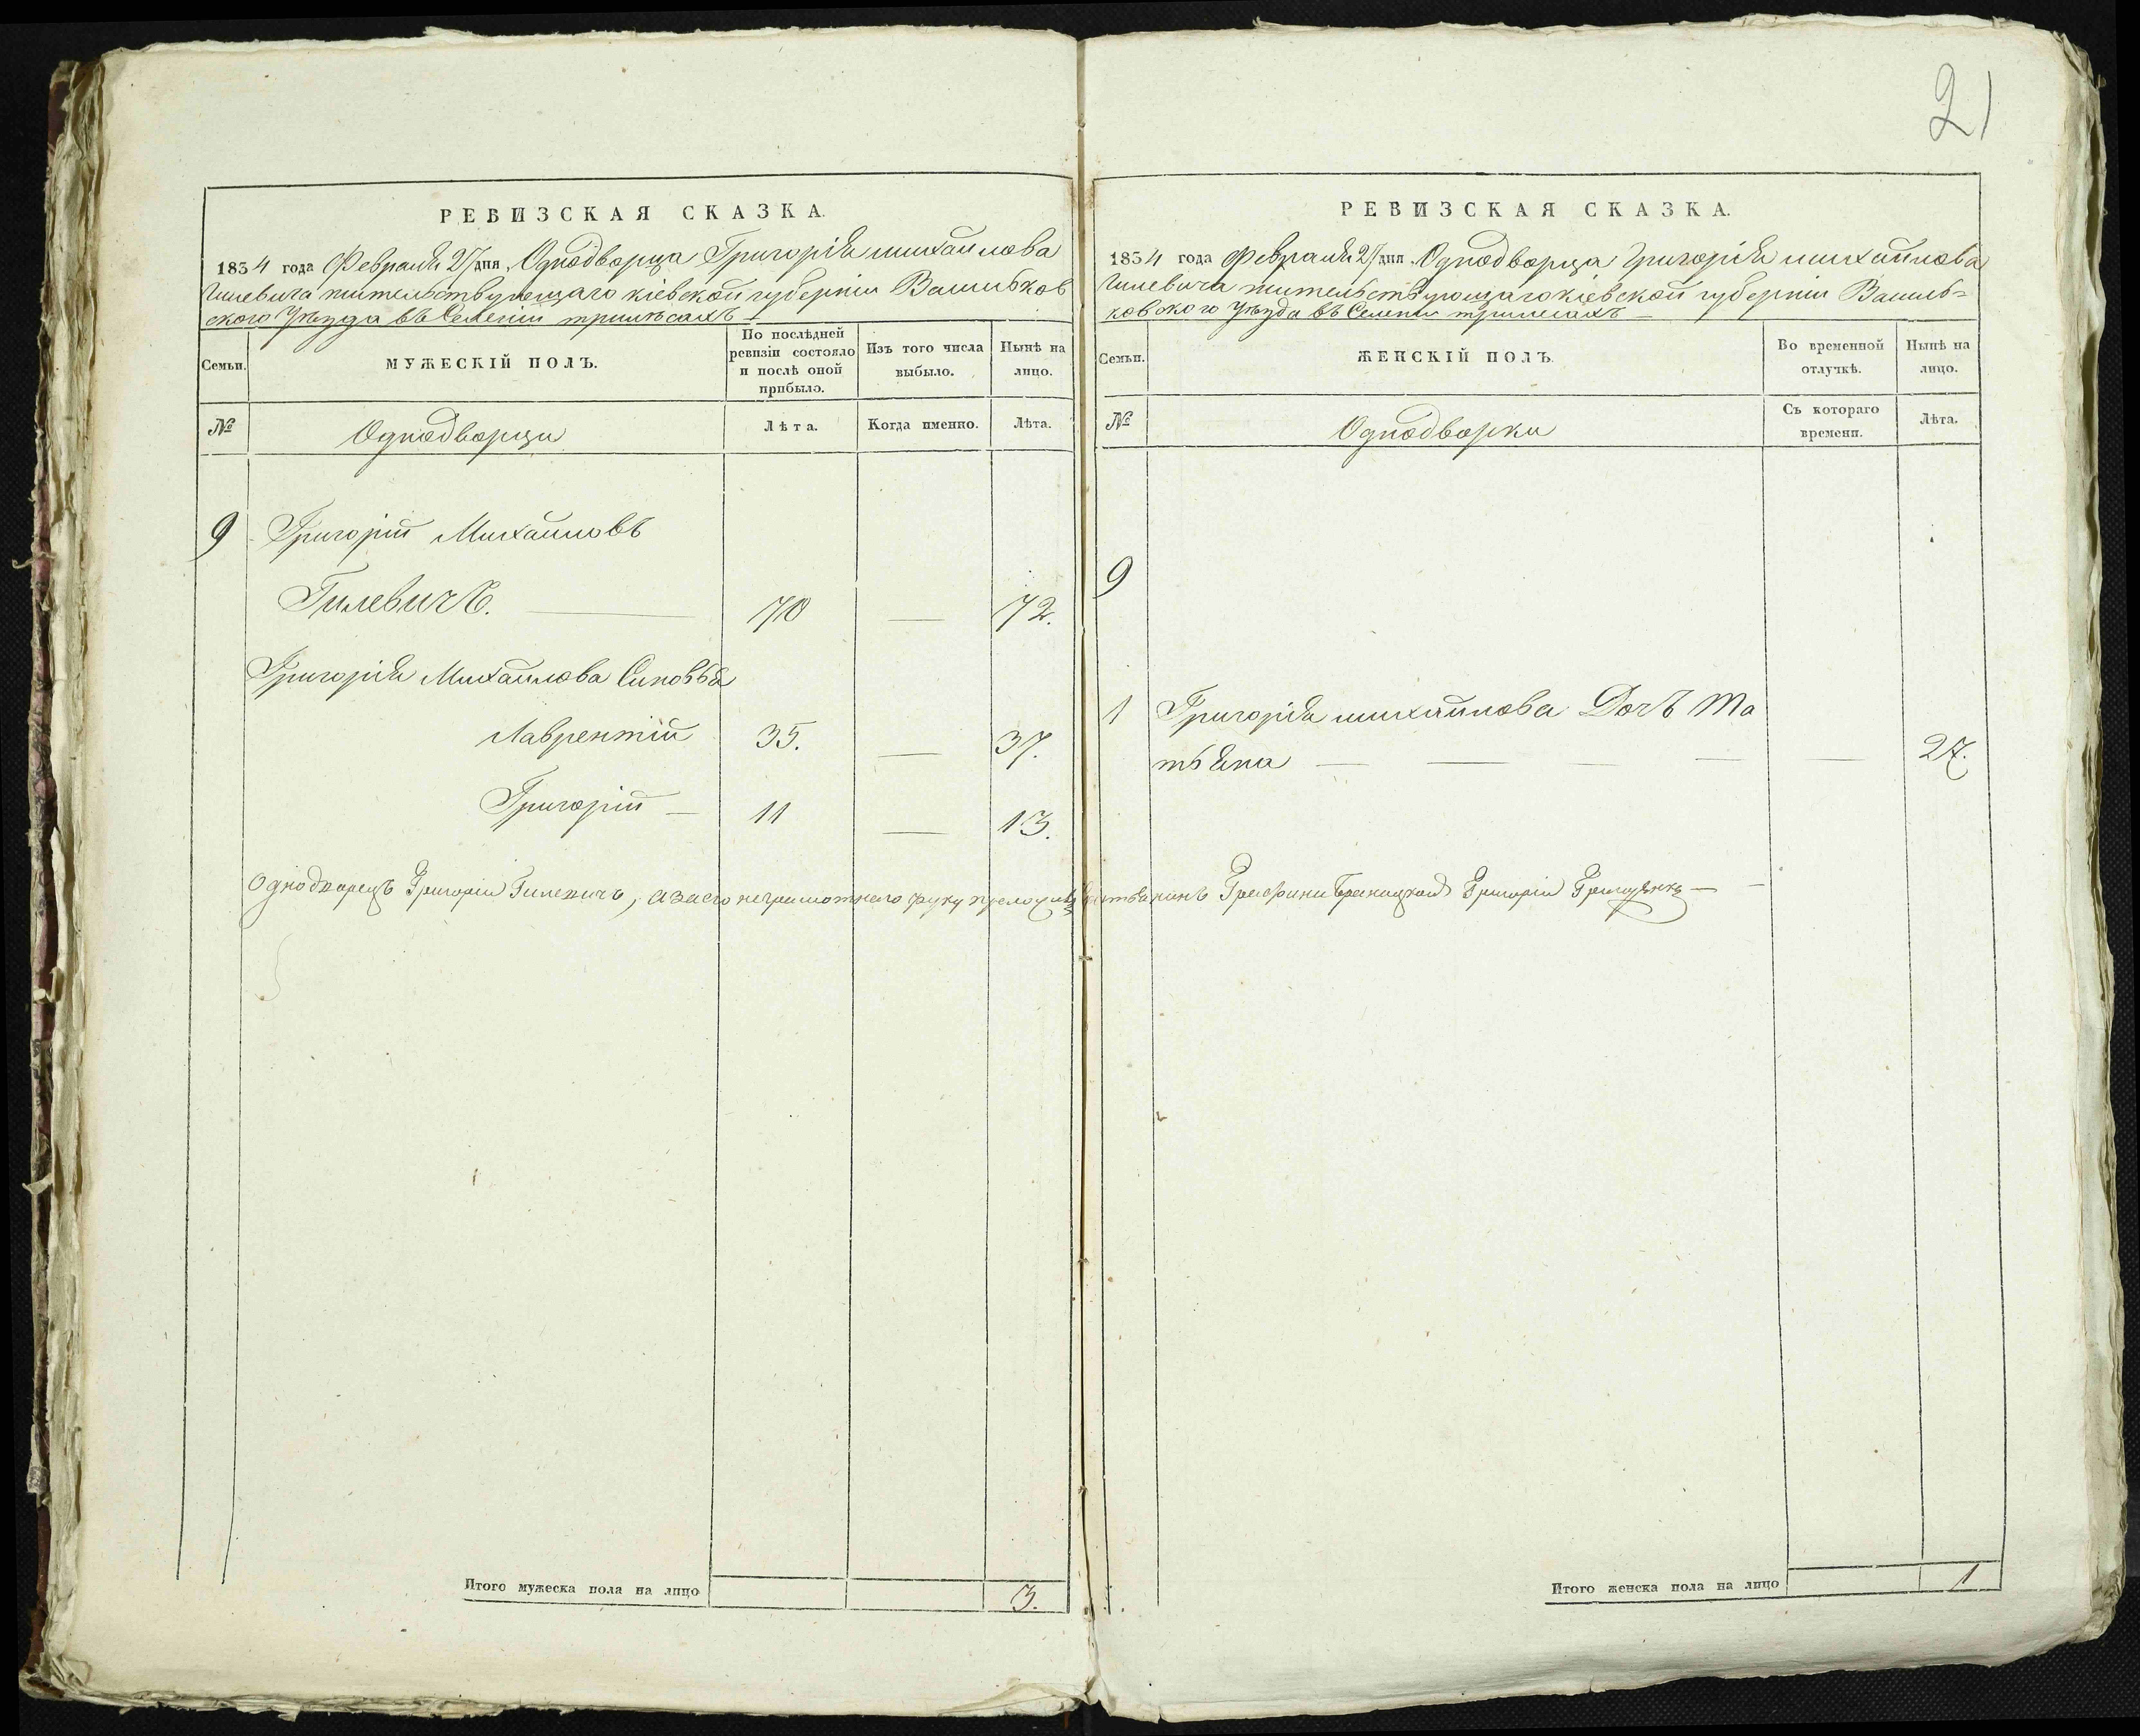 21
РЕВИЗСКАЯ СКАЗКА.
1834 года Февраля 27 дня, Однодворца Григорія михайлова
Гилевича жительствующаго кіевской губерніи Васильков
ского Уезда въ Селеніи трилѣсахъ
Семьи.
МУЖЕСКІЙ ПОЛЪ.
По послѣдней
ревизіи состояло
и послѣ оной
прибыло.
Изъ того числа
выбыло.
Нынѣ на
лицо.
№
Однодворци
Лѣта.
Когда именно.
Лѣта.
9 Григорій Михайловъ
Гилевичъ. — 70 — 72.
Григорія Михайлова Синовья
Лаврентій 35. — 37.
Григорій — 11 — 13.
Однодворецъ Григорій Гилевичъ, а за его неграмотнего руку
Итого мужеска пола на лицо 3.
РЕВИЗСКАЯ СКАЗКА.
1834 года Февраля 27 дня. Однодворца Григорія михайлова
Гилевича жительствующаго кіевской губерніи Василь=
ковского Уезда въ Селеніи трилесахъ —
Семьи.
ЖЕНСКІЙ ПОЛЪ.
Во временной
отлучкѣ.
Нынѣ на
лицо.
№
Однодворки
Съ котораго
времени.
Лѣта.
9
1 Григорія михайлова Дочъ Та
тьяна — — — — — 27.
Графини Браницкой Григорій —
Итого женска пола на лицо 1